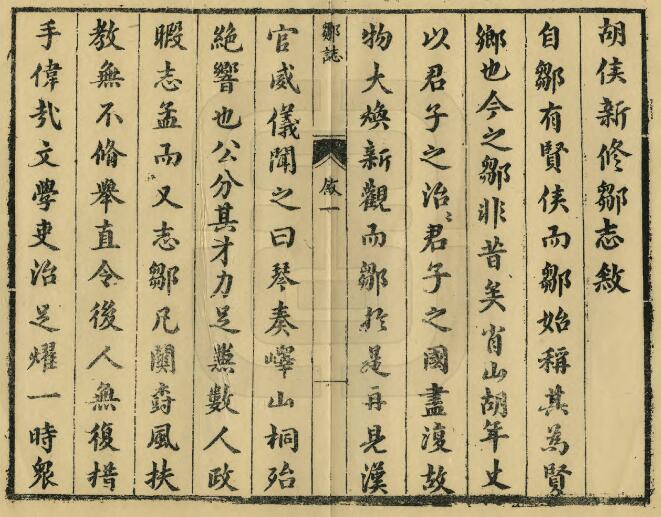 胡侯新修鄒志敘
自鄒有賢侯而鄒始稱其為賢
鄉也今之鄒非昔矣肖山胡年丈
以君子之治〻君子之國盡復故
物大煥新觀而鄒於是再見漢
鄒誌
敘一
官威儀聞之曰琴奏嶧山桐殆
絕響也公分其才力足兼數人政
暇志孟而又志鄒凡關嗣風扶
教無不脩舉直令後人無復措
手偉哉文學吏治足耀一時眾